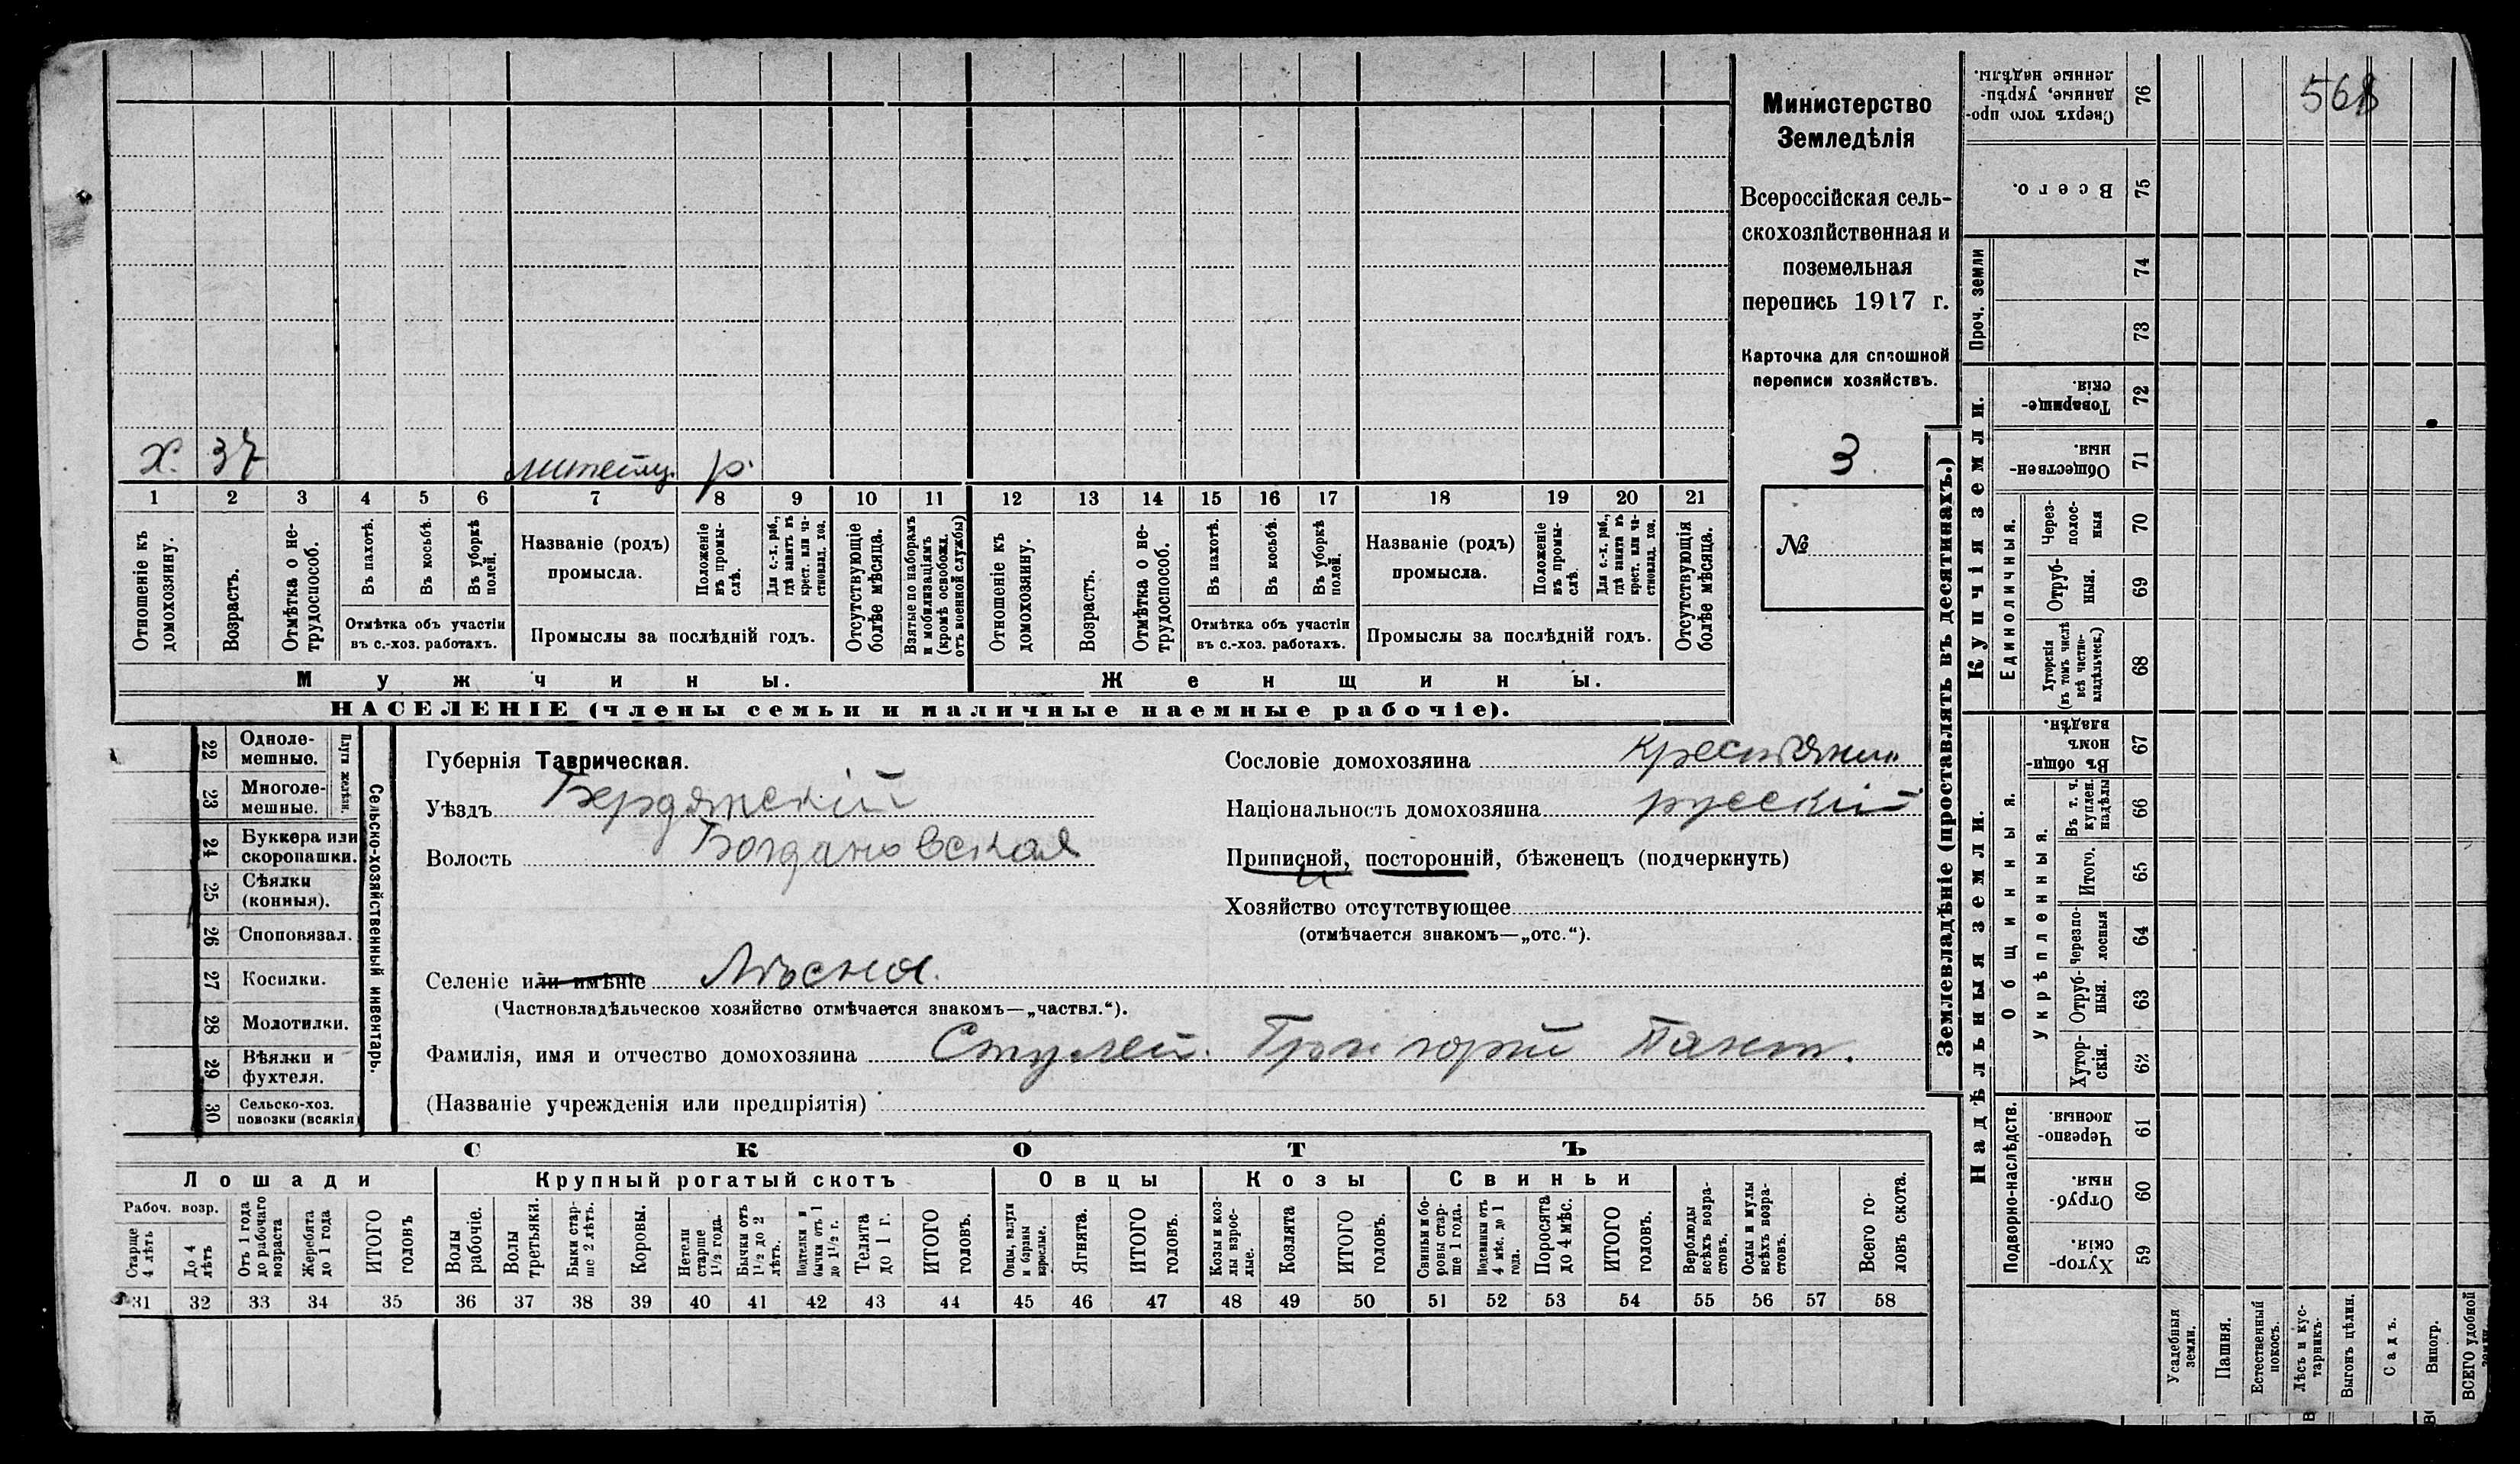 568
Министерство
Земледѣлія
Всероссійская сель-
скохозяйственная и
поземельная
перепись 1917 г.
Карточка для сплошной
переписи хозяйствъ.
3
№
Х. 37 р.
1 2 3 4 5 6 7 8 9 10 11 12 13 14 15 16 17 18 19 20 21
Отношеніе къ домохозяину.
Возрастъ.
Отмѣтка о не-трудоспособ.
Въ пахотѣ.
Въ косьбѣ.
Въ уборкѣ полей.
Отмѣтка объ участіи
въ с.-хоз. работахъ.
Названіе (родъ)
промысла.
Положеніе въ промы-слѣ.
Для с.-х. раб., гдѣ занятъ въ крест. или ча-стновлад. хоз.
Промыслы за послѣдній годъ.
Отсутствующіе болѣе мѣсяца.
Взятые по наборамъ и мобилизаціямъ (кромѣ освобожд. отъ военной службы)
Отношеніе къ домохозяину.
Возрастъ.
Отмѣтка о не-трудоспособ.
Въ пахотѣ.
Въ косьбѣ.
Въ уборкѣ полей.
Отмѣтка объ участіи
въ с.-хоз. работахъ.
Названіе (родъ)
промысла.
Положеніе въ промы-слѣ.
Для с.-х. раб., гдѣ занята въ крест. или ча-стновлад. хоз.
Промыслы за послѣдній годъ.
Отсутствующія болѣе мѣсяца.
Мужчины.
Женщины.
НАСЕЛЕНІЕ (члены семьи и наличные наемные рабочіе).
22 Одноле-мешные.
23 Многоле-мешные.
Плуги желѣзн.
24 Буккера или скоропашки.
25 Сѣялки (конныя).
26 Споповязал.
27 Косилки.
28 Молотилки.
29 Вѣялки и фухтеля.
30 Сельско-хоз. повозки (всякія)
Сельско-хозяйственный инвентарь.
Губернія Таврическая.
Уѣздъ Бердянскій
Волость Богдановская
Сословіе домохозяина крестьянин
Національность домохозяина русскій
Приписной, и посторонній, бѣженецъ (подчеркнуть)
Хозяйство отсутствующее
(отмѣчается знакомъ—„отс.“).
Селеніе или имѣніе
(Частновладѣльческое хозяйство отмѣчается знакомъ—„частвл.“).
Фамилія, имя и отчество домохозяина Григорій
(Названіе учрежденія или предпріятія)
СКОТЪ
Лошади
Крупный рогатый скотъ
Овцы
Козы
Свиньи
Рабоч. возр.
Старше 4 лѣтъ
До 4 лѣтъ
Отъ 1 года до рабочаго возраста
Жеребята до 1 года
ИТОГО головъ
Волы рабочіе.
Волы третьяки.
Быки стар-ше 2 лѣтъ.
Коровы.
Нетели старше 1½ года.
Бычки отъ 1½ до 2 лѣтъ.
Подтелки и бычки отъ 1 до 1½ г.
Телята до 1 г.
ИТОГО головъ.
Овцы, валухи и бараны взрослые.
Ягнята.
ИТОГО головъ.
Козы и коз-лы взрос-лые.
Козлята
ИТОГО головъ.
Свиньи и бо-ровы стар-ше 1 года.
Подсвинки отъ 4 мѣс. до 1 года.
Поросята до 4 мѣс.
ИТОГО головъ.
Верблюды всѣхъ возра-стовъ.
Ослы и мулы всѣхъ возра-стовъ.
Всего го-ловъ скота.
31 32 33 34 35 36 37 38 39 40 41 42 43 44 45 46 47 48 49 50 51 52 53 54 55 56 57 58
Землевладѣніе (проставлять въ десятинахъ.)
Купчія земли.
Надѣльныя земли.
Проч. земли
Единоличныя.
Общинныя.
Укрѣпленныя.
Подворно-наслѣдств.
Сверхъ того про-данные, укрѣп-ленные надѣлы. 76
Всего. 75
74
73
Товарище-скія. 72
Обществен-ныя. 71
Через-полос-ныя 70
Отруб-ныя. 69
Хуторскія (въ томъ числѣ всѣ частно-владѣльческ.) 68
Въ общи-номъ владѣн. 67
Въ т. ч. куплен. надѣлы 66
Итого. 65
Черезпо-лосныя 64
Отруб-ныя. 63
Хутор-скія. 62
Черезпо-лосныя. 61
Отруб-ныя. 60
Хутор-скія. 59
Усадебныя земли.
Пашня.
Естественный покосъ.
Лѣсъ и кус-тарникъ.
Выгонъ цѣлин.
Садъ.
Виногр.
ВСЕГО удобной земли.